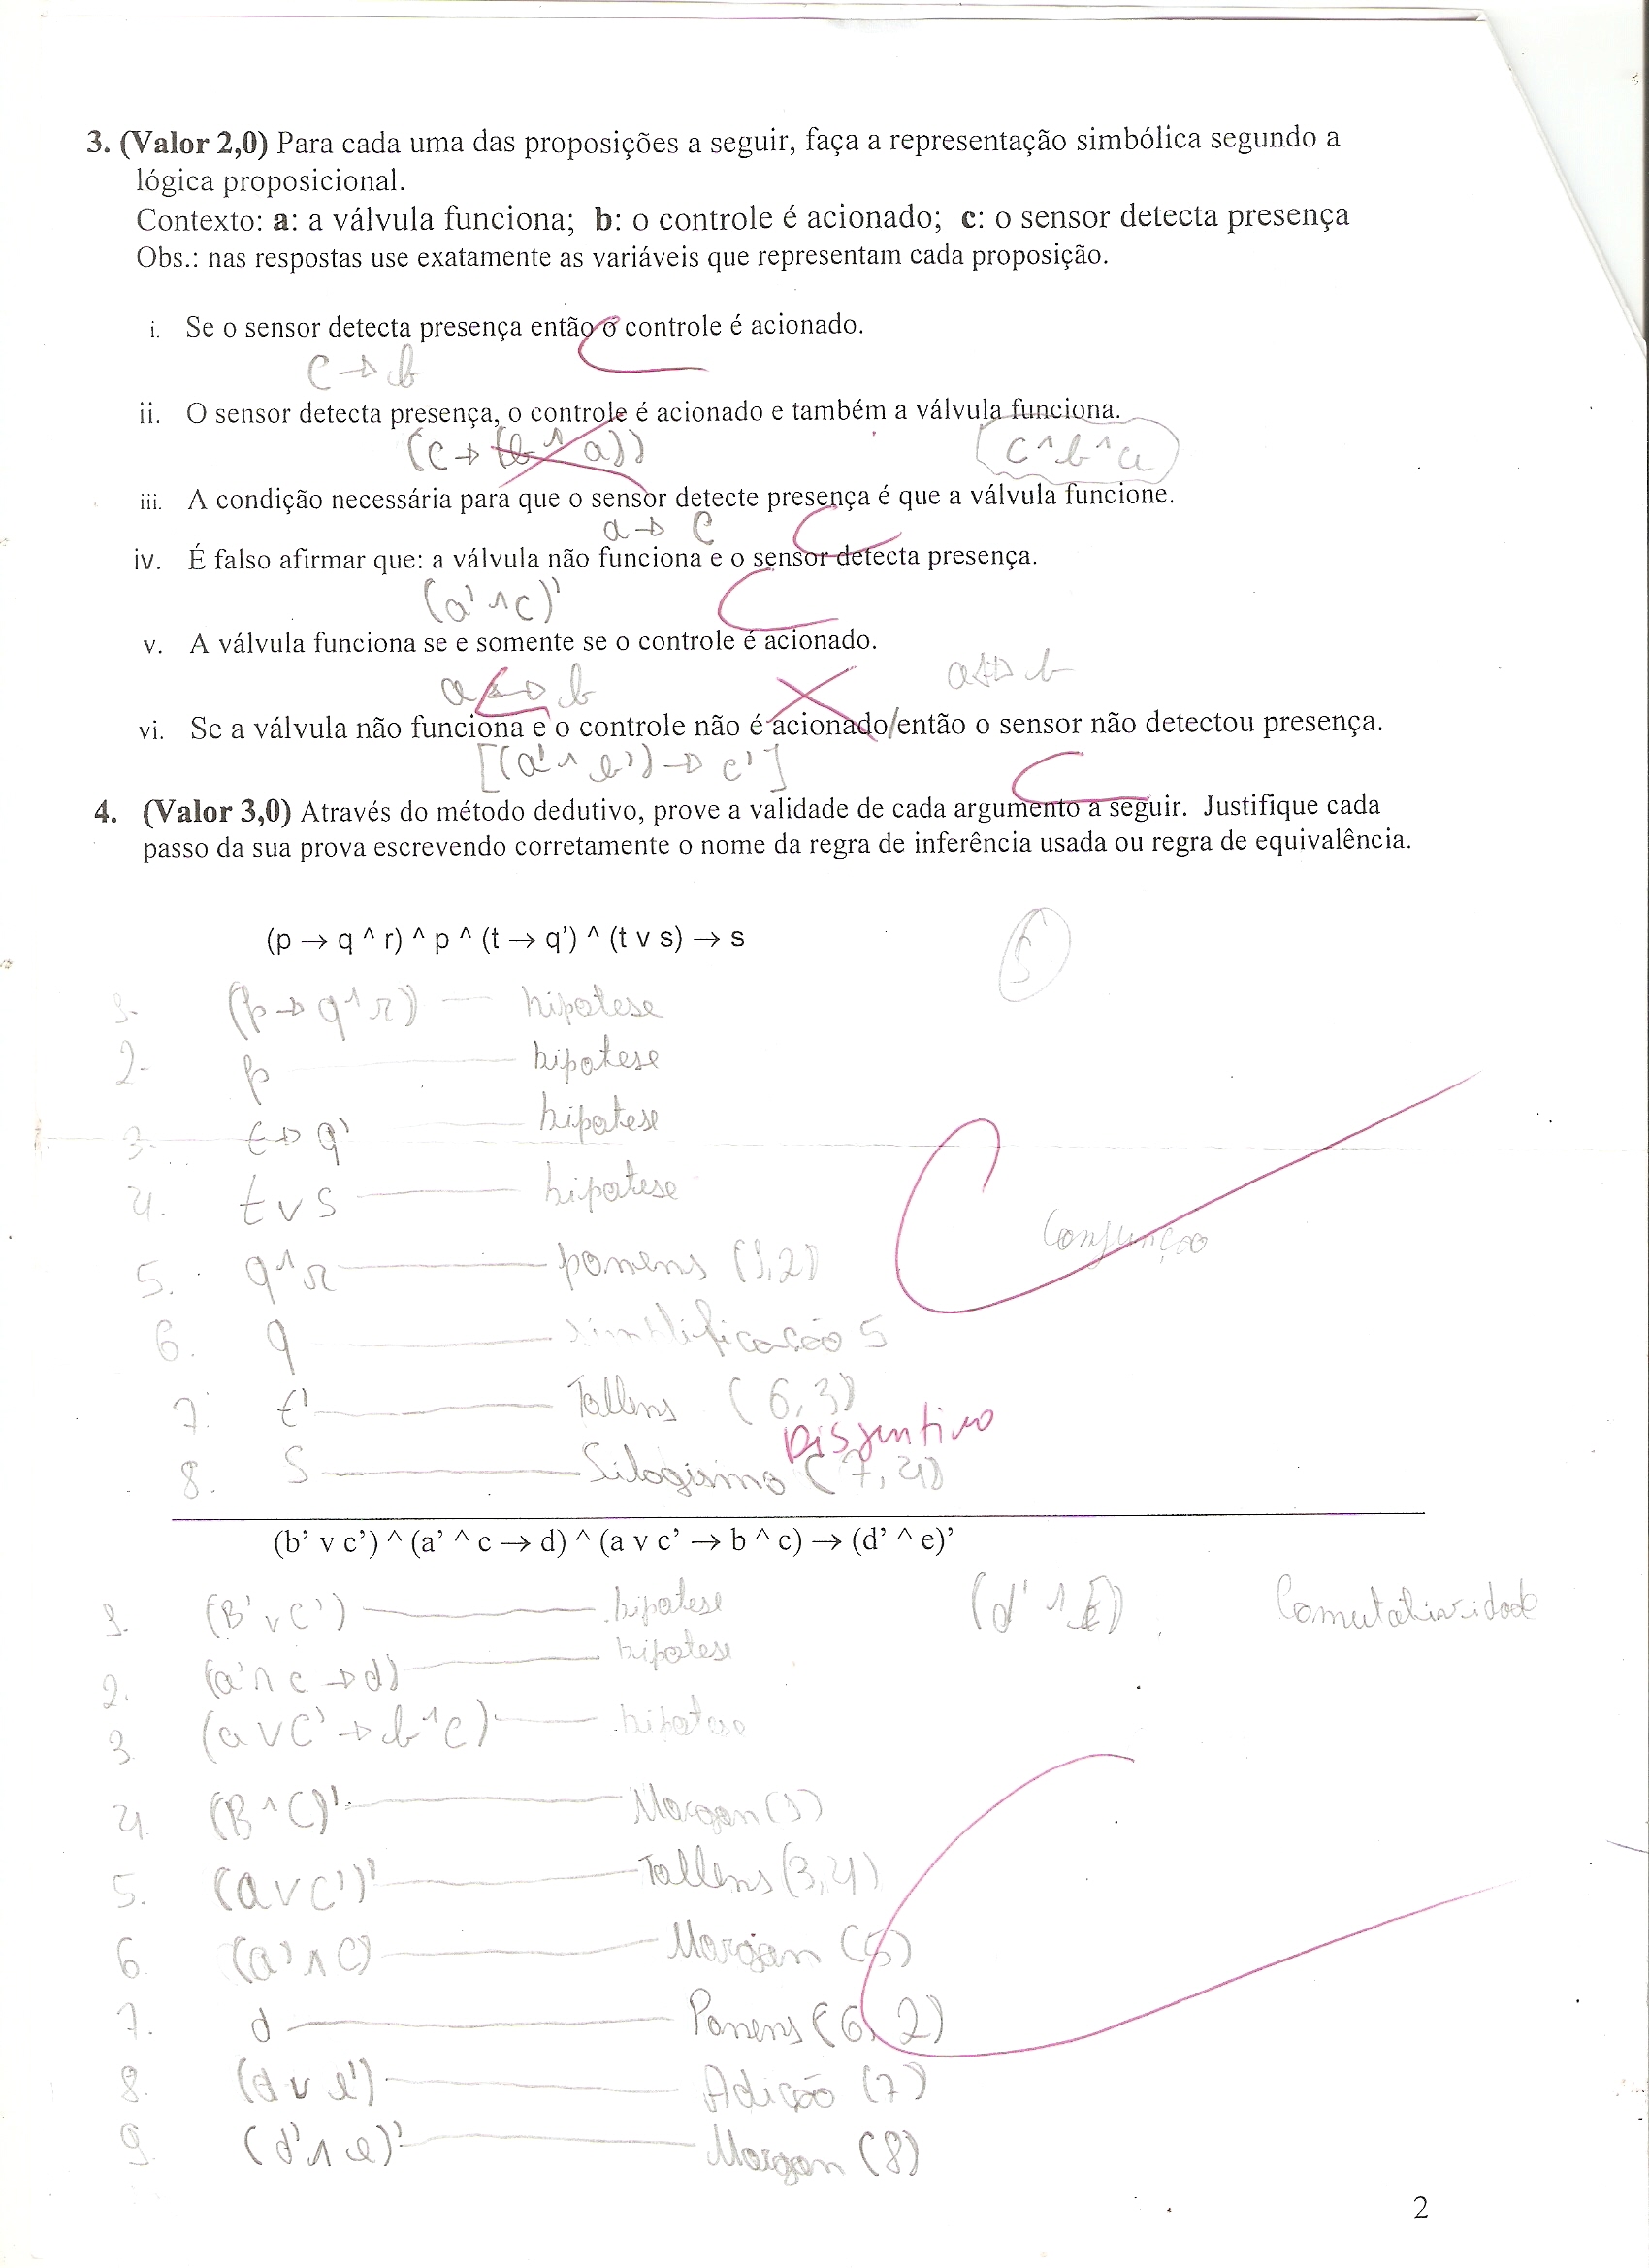 3. (Valor 2,0) Para cada uma das proposições a seguir, faça a representação simbólica segundo a
lógica proposicional.
Contexto: a: a válvula funciona; b: o controle é acionado; c: o sensor detecta presença
Obs.: nas respostas use exatamente as variáveis que representam cada proposição.
i. Se o sensor detecta presença então o controle é acionado.
C → b
ii. O sensor detecta presença, o controle é acionado e também a válvula funciona.
(C → (b ^ a)) C ^ b ^ a
iii. A condição necessária para que o sensor detecte presença é que a válvula funcione.
a → C
iv. É falso afirmar que: a válvula não funciona e o sensor detecta presença.
(a' ^ c)'
v. A válvula funciona se e somente se o controle é acionado.
a ↔ b a ↔ b
vi. Se a válvula não funciona e o controle não é acionado/então o sensor não detectou presença.
[(a' ^ b') → c']
4. (Valor 3,0) Através do método dedutivo, prove a validade de cada argumento a seguir. Justifique cada
passo da sua prova escrevendo corretamente o nome da regra de inferência usada ou regra de equivalência.
(p → q ^ r) ^ p ^ (t → q') ^ (t v s) → s
1. (p → q ^ r) — hipotese
2. p — hipotese
3. t → q' — hipotese
4. t v s — hipotese
5. q ^ r — ponens (1,2) Conjunção
6. q — simplificação 5
7. t' — Tollens (6,3)
Disjuntivo
8. S — Silogismo (7,4)
(b' v c') ^ (a' ^ c → d) ^ (a v c' → b ^ c) → (d' ^ e)'
1. (B' v C') — hipotese (d' ^ E) Comutatividade
2. (a' ^ c → d) — hipotese
3. (a v C' → b ^ C) — hipotese
4. (B ^ C)' — Morgan (1)
5. (a v C')' — Tollens (3,4)
6. (a' ^ C) — Morgan (5)
7. d — Ponens (6,2)
8. (d v e') — Adição (7)
9. (d' ^ e)' — Morgan (8)
2